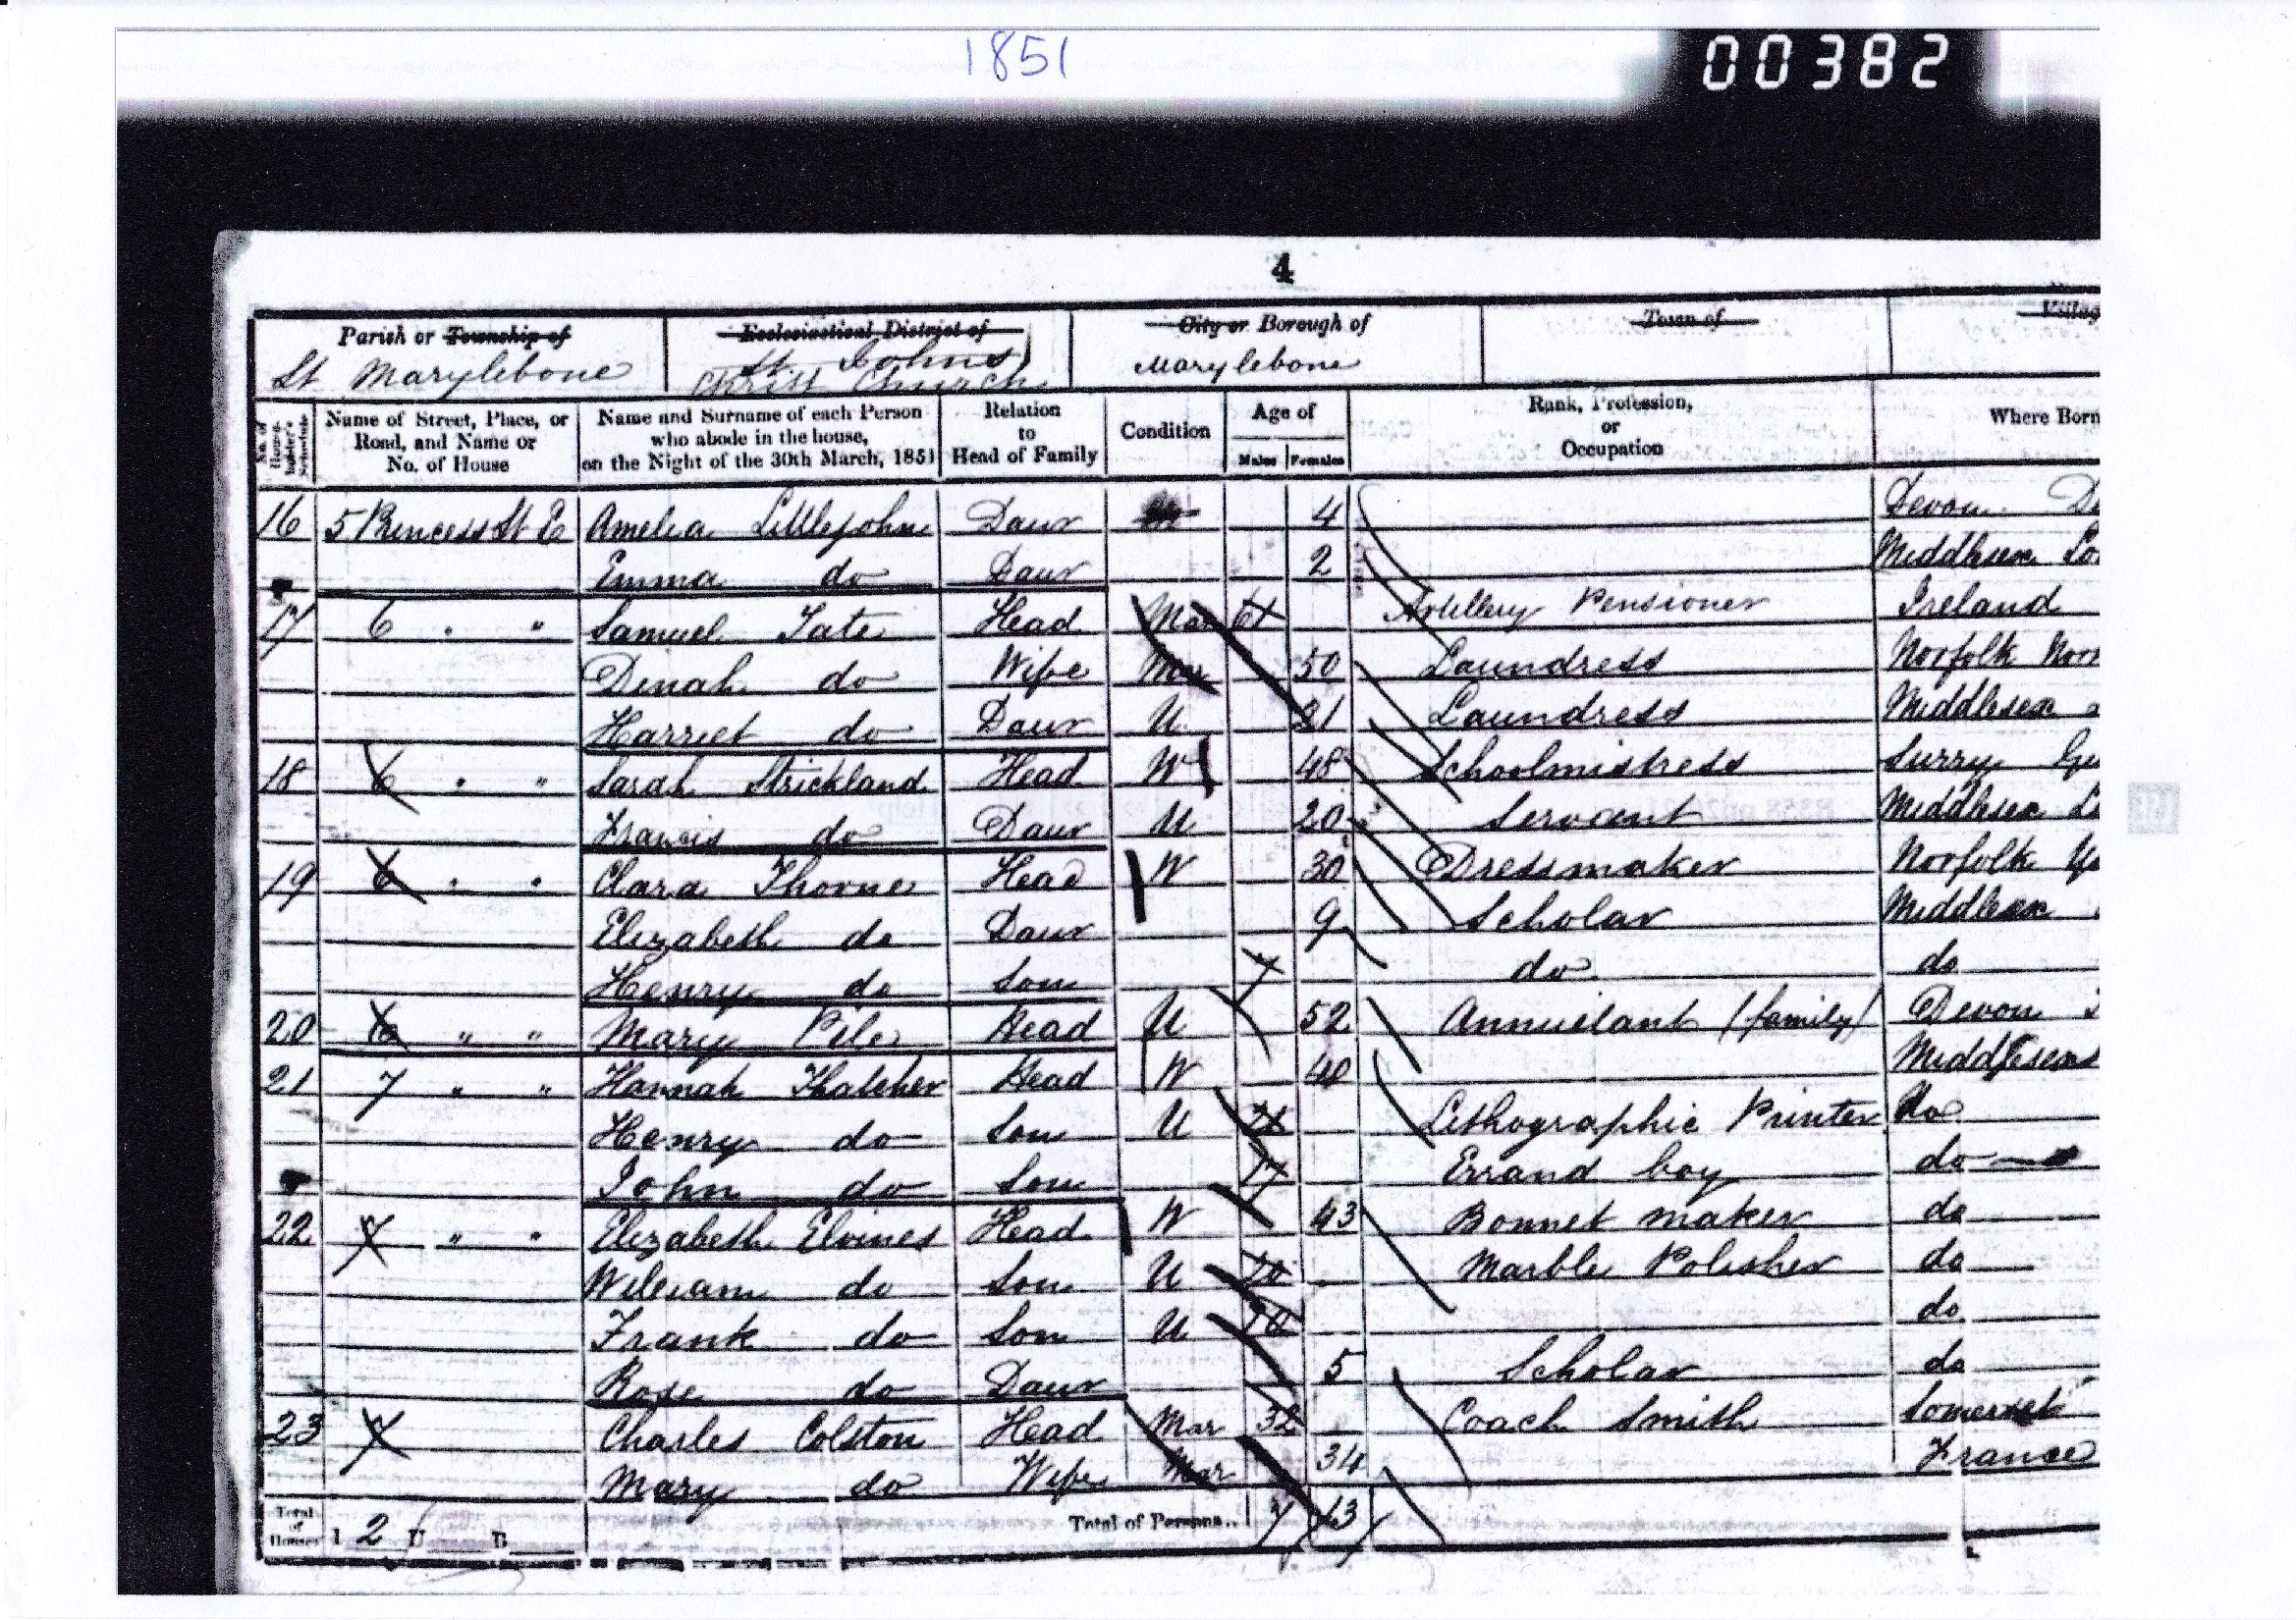 1851
00382
4
Parish or Township of Ecclesiastical District of City or Borough of Town of
St Marylebone St Johns Marylebone
Christ Church
No. of Householder's Schedule Name of Street, Place, or Road, and Name or No. of House Name and Surname of each Person who abode in the house, on the Night of the 30th March, 1851 Relation to Head of Family Condition Age of Males Females Rank, Profession, or Occupation Where Born
16 5 Princess St E Amelia Littlejohn Daur 4 Devon
Emma do Daur 2 Middlesex
17 6 " Samuel Tate Head Mar 61 Artillery Pensioner Ireland
Dinah do Wife Mar 50 Laundress Norfolk
Harriet do Daur U 21 Laundress Middlesex
18 6 " Sarah Strickland Head W 48 Schoolmistress Surry
Francis do Daur U 20 Servant Middlesex
19 6 Clara Thorne Head W 30 Dressmaker Norfolk
Elizabeth do Daur 9 Scholar Middlesex
Henry do Son 7 do do
20 6 " " Mary Pile Head U 52 Annuitant (family) Devon
21 7 " " Hannah Thatcher Head W 40 Middlesex
Henry do Son U Lithographic Printer do
John do Son 17 Errand boy do
22 7 " Elizabeth Elvines Head W 43 Bonnet maker do
William do Son U 20 Marble Polisher do
Frank do Son U do
Rose do Daur 5 Scholar do
23 7 Charles Colston Head Mar 32 Coach Smith Somerset
Mary do Wife Mar 34 France
Total of Houses I 2 U B Total of Persons.. 7 13